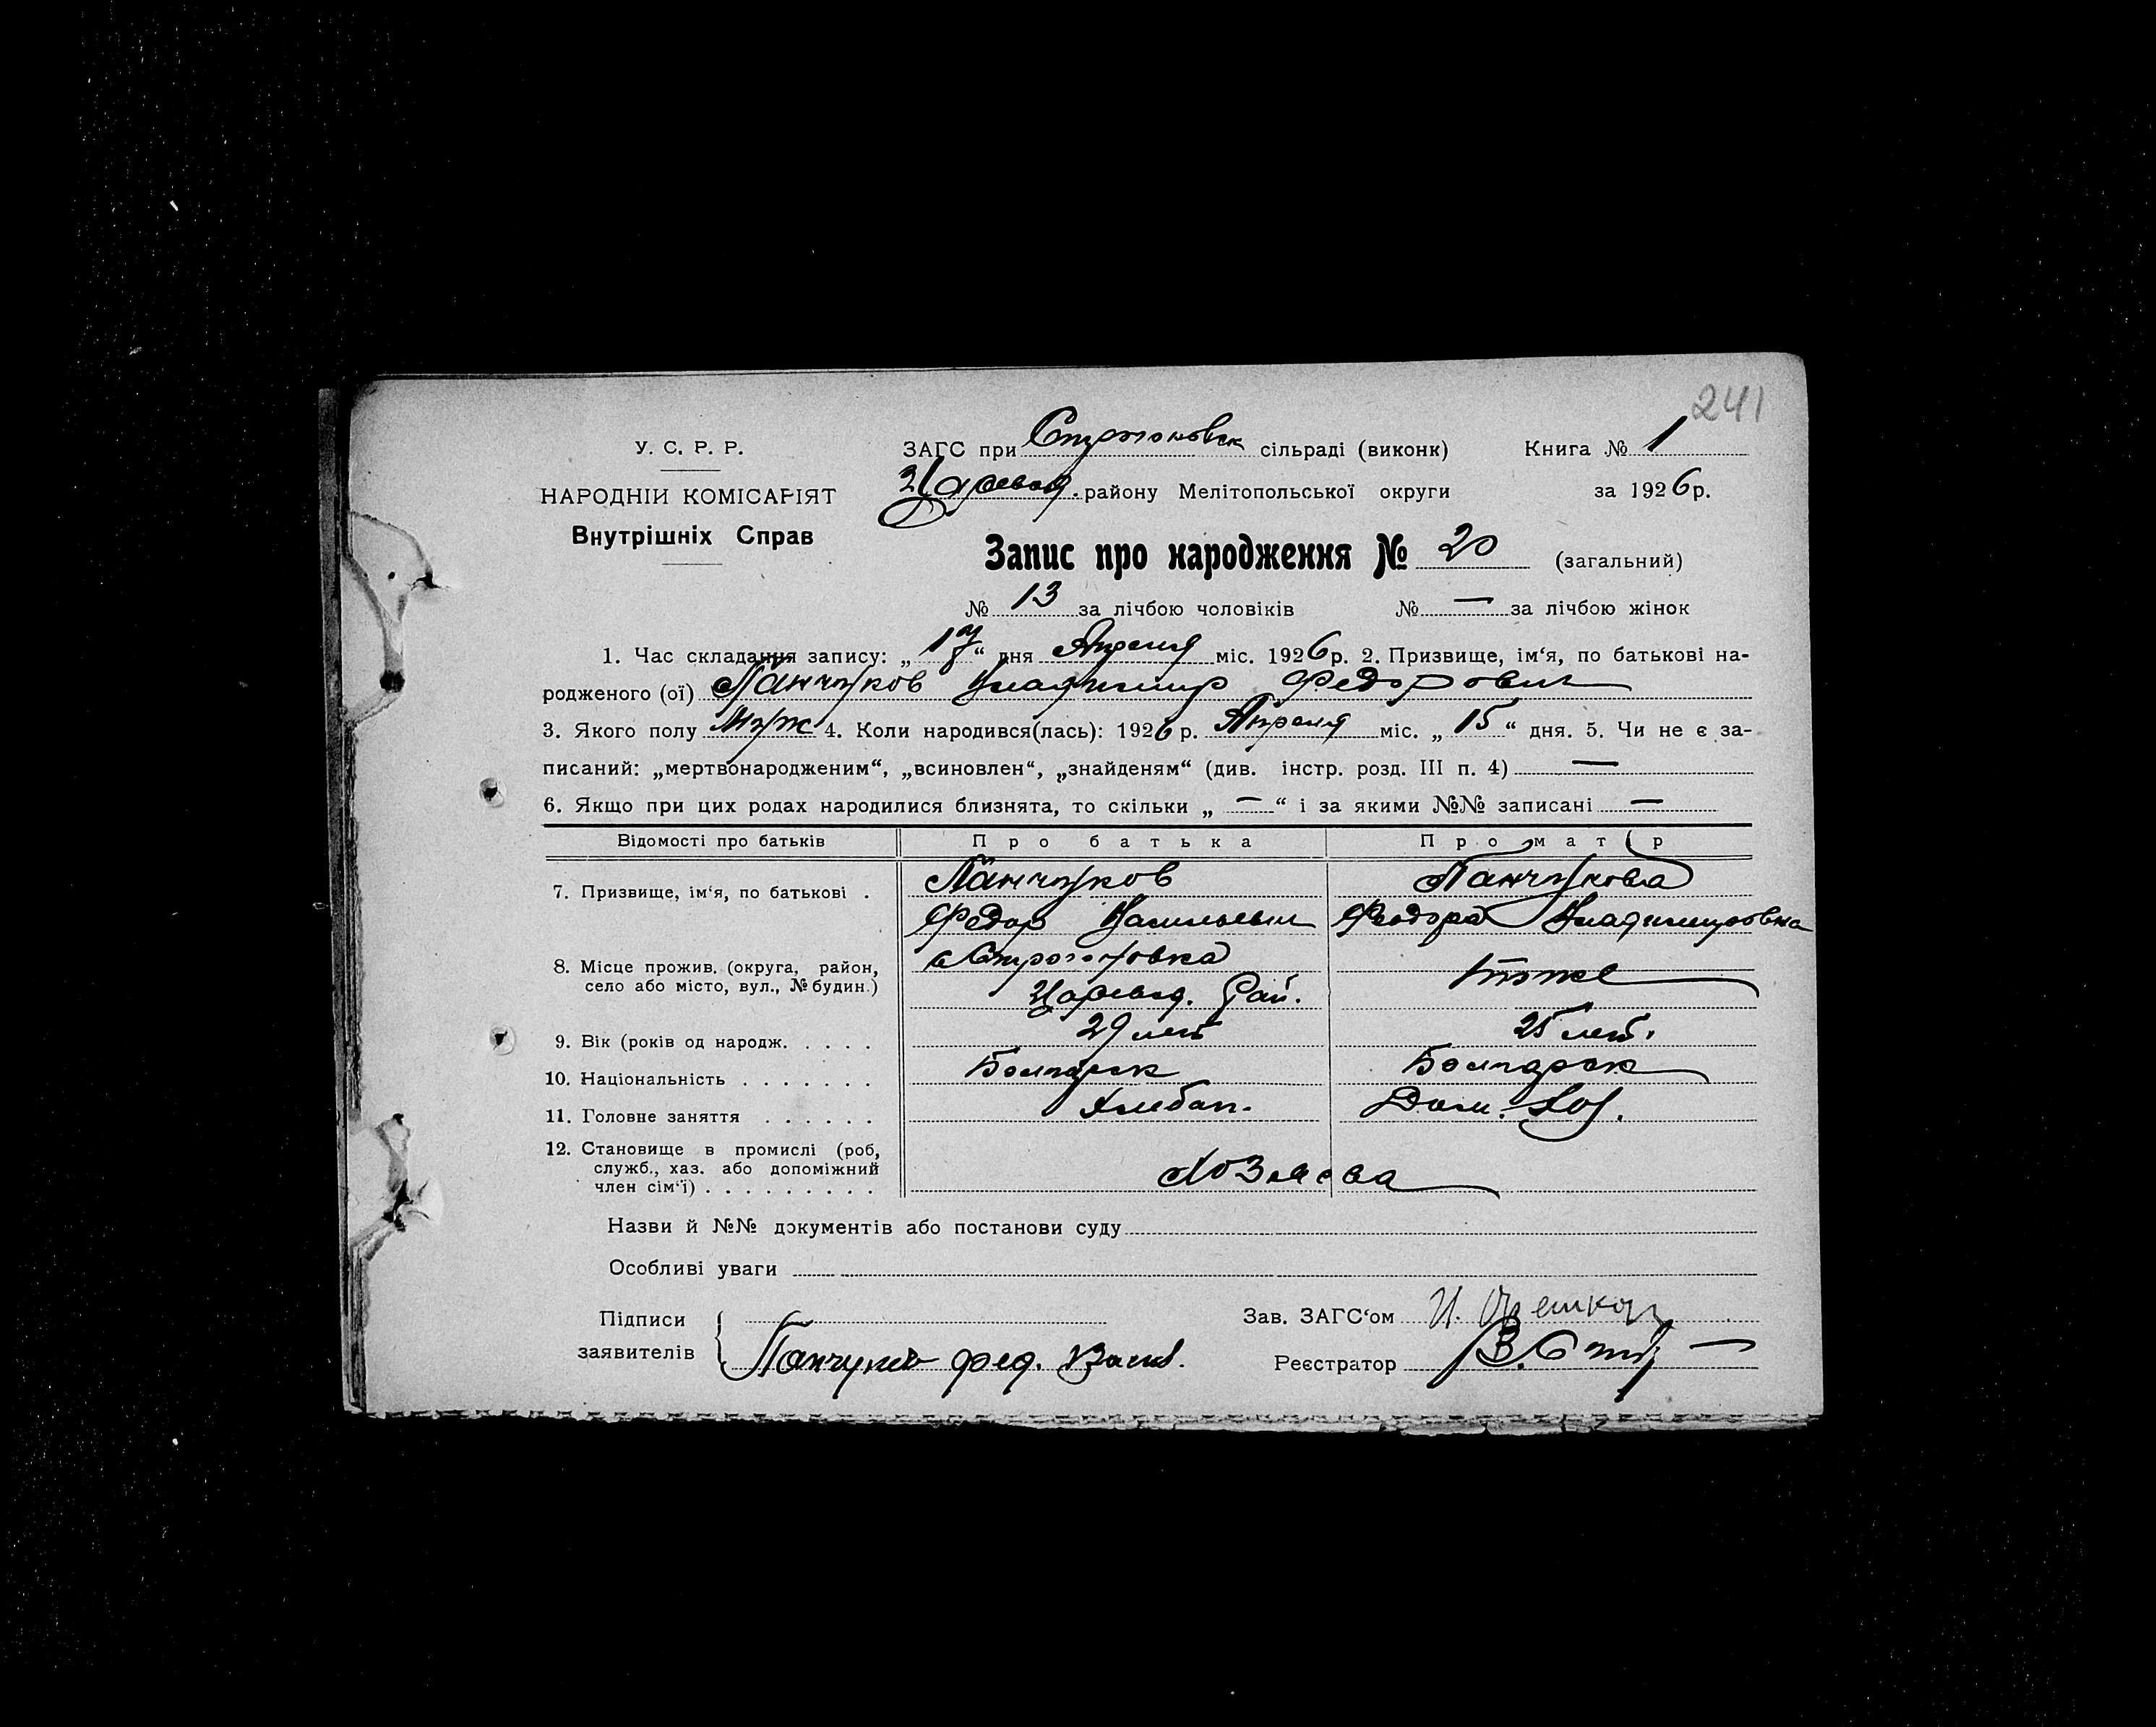 241
У. С. Р. Р.
НАРОДНІИ КОМІСАРІЯТ
Внутрішніх Справ
ЗАГС при сільраді (виконк) Книга № 1
Царевод. району Мелітопольської округи за 1926 р.
Запис про народження № 20 (загальний)
№ 13 за лічбою чоловіків № — за лічбою жінок
1. Час складання запису: „ 17 “ дня Апреля міс. 1926 р. 2. Призвище, ім‘я, по батькові на-
родженого (ої) Панчуков Владимир Федорович
3. Якого полу Муж 4. Коли народився(лась): 1926 р. Апреля міс. „ 15 “ дня. 5. Чи не є за-
писаний: „мертвонародженим“, „всиновлен“, „знайденям“ (див. інстр. розд. III п. 4) —
6. Якщо при цих родах народилися близнята, то скільки „ — “ і за якими №№ записані —
Відомості про батьків Про батька Про матір
7. Призвище, ім‘я, по батькові . Панчуков Панчукова
Федор Васильевич Феодора Владимировна
8. Місце прожив. (округа, район, село або місто, вул., № будин.) с Строгоновка тоже
Царевод. Рай.
9. Вік (років од народж. . . . . 29 лет 25 лет.
10. Національність . . . . . . . Болгарск Болгарск
11. Головне заняття . . . . . . Хлебоп. Дом. Хоз.
12. Становище в промислі (роб, служб., хаз. або допоміжний член сім‘ї) . . . . . . . . .
Назви й №№ документів або постанови суду
Особливі уваги
Підписи заявителів Панчуков Фед. Васил.
Зав. ЗАГС‘ом И.
Реєстратор В.